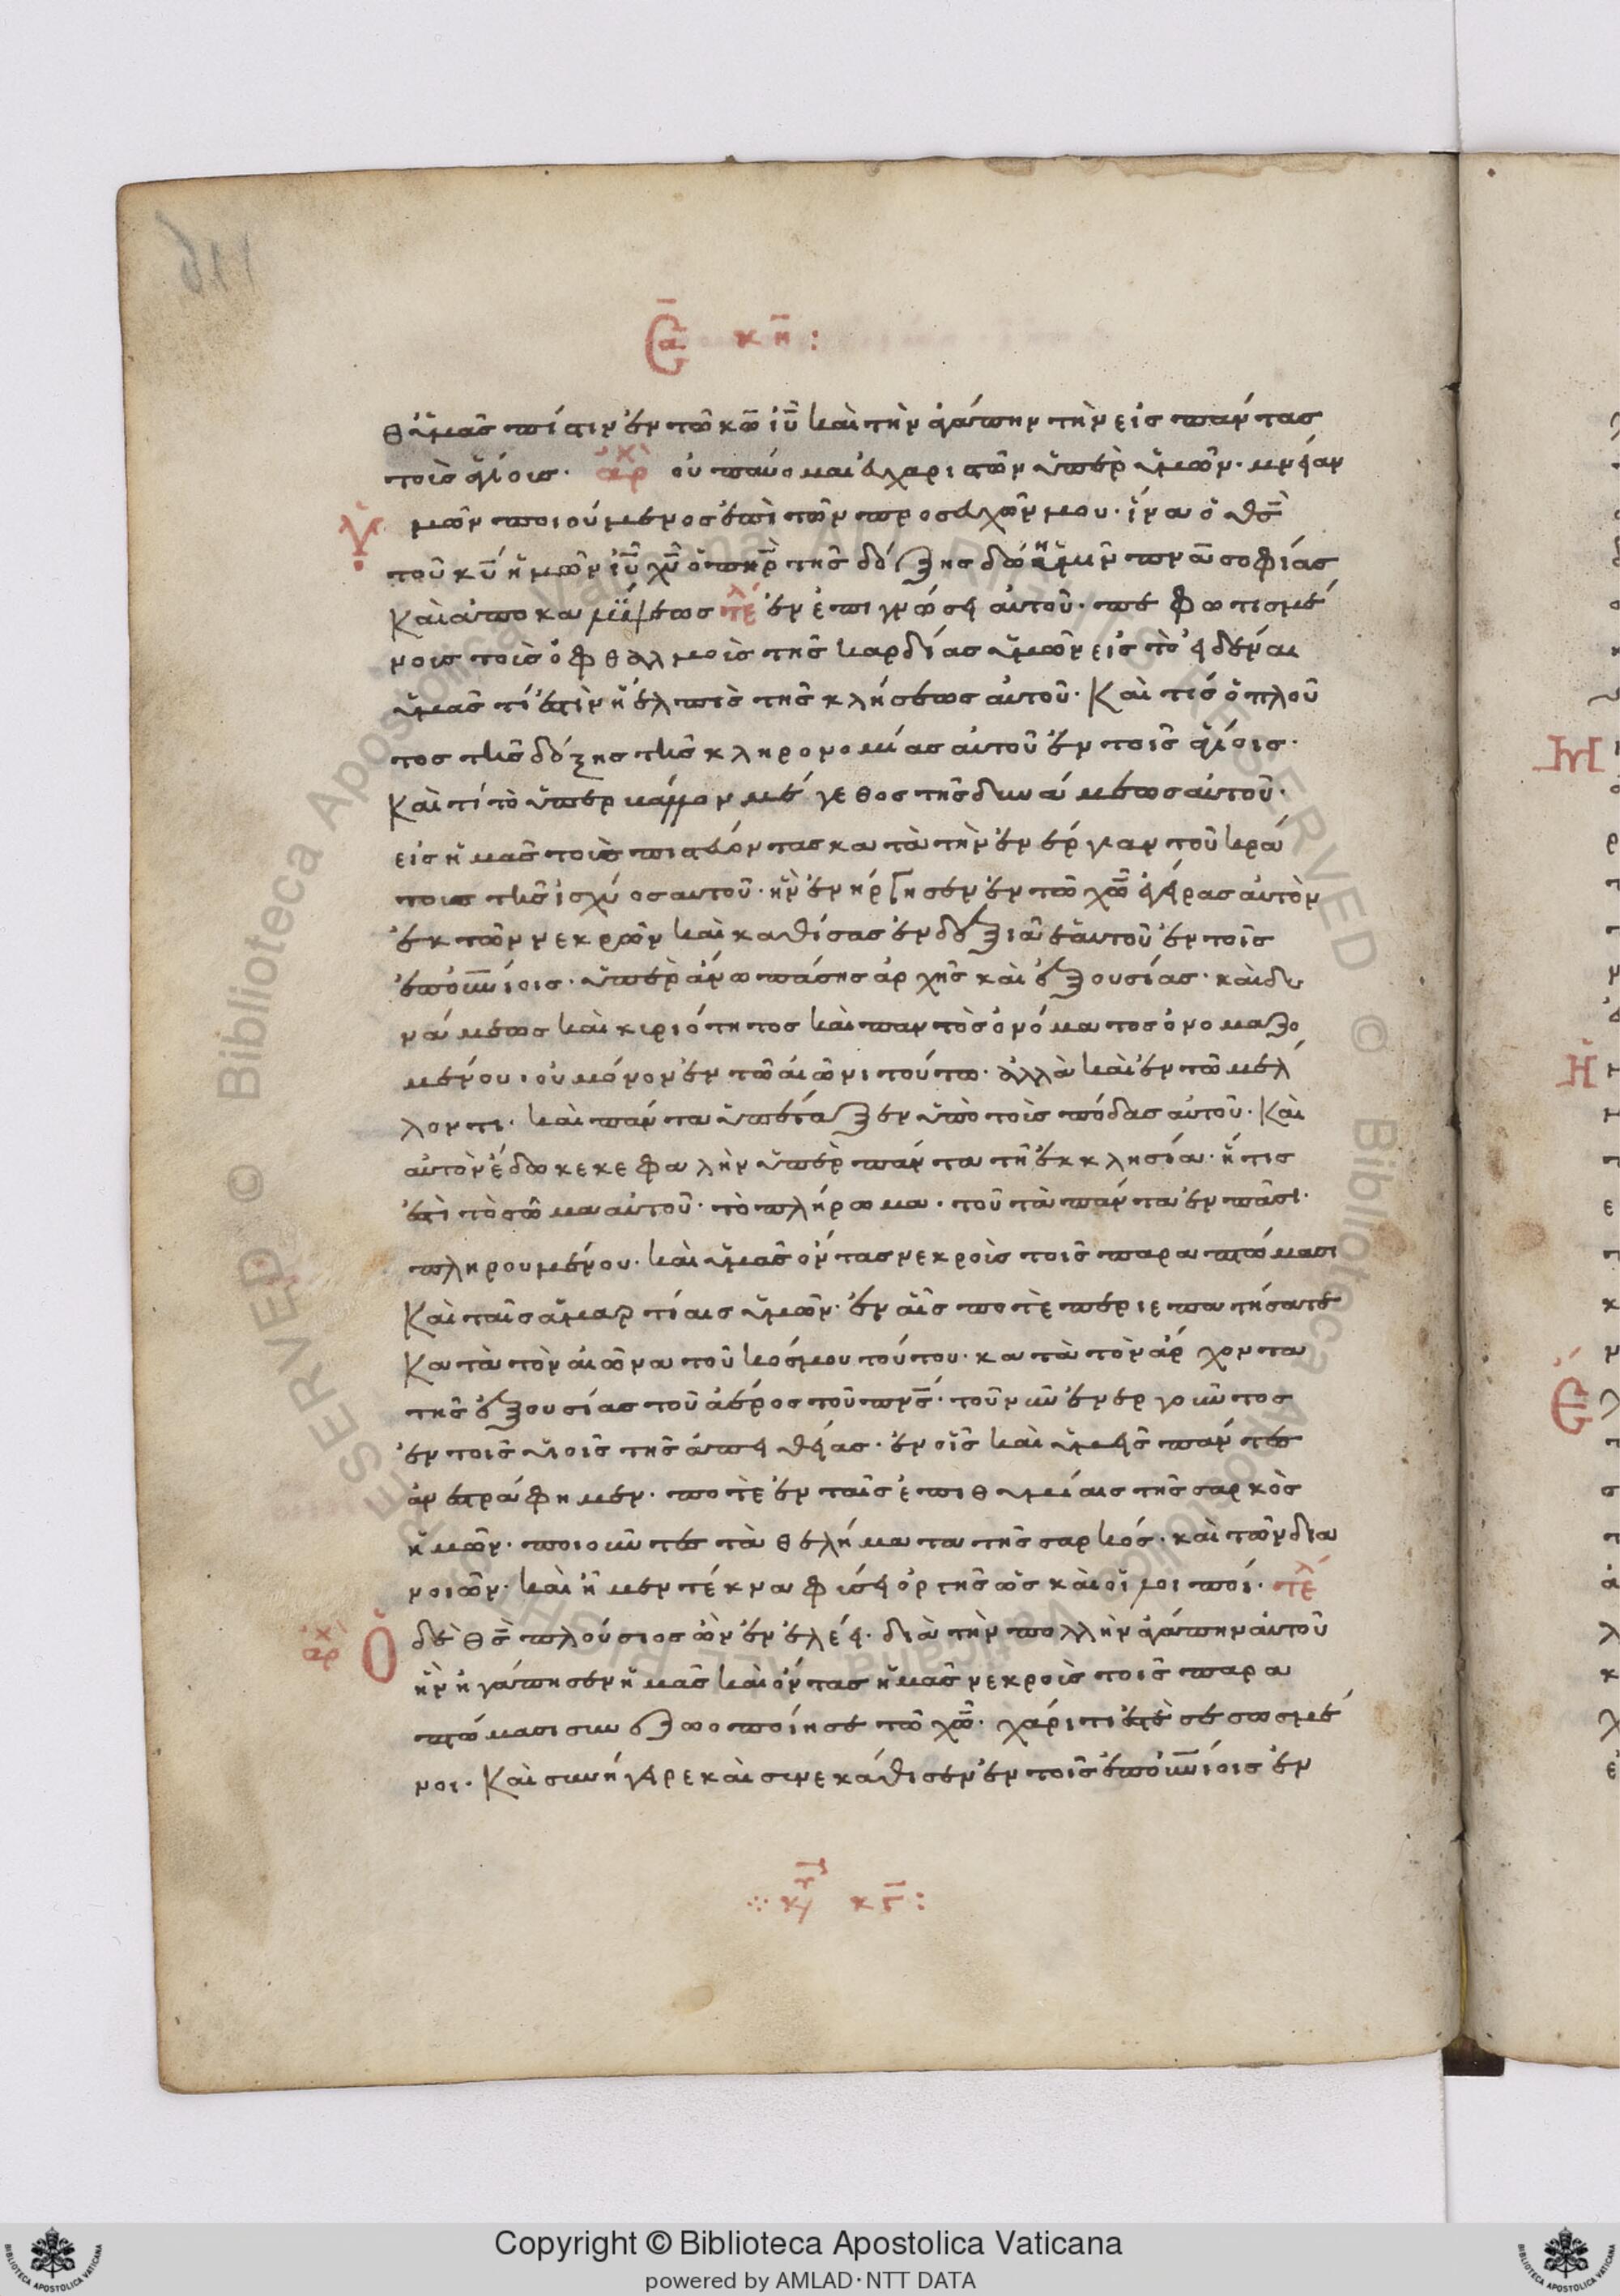 116
Ϛα κη:
θ ὑμᾶς πίστιν ἐν τῶ κω ιυ καὶ τὴν ἀγάπην τὴν εἰς πάντας
τοὺς ἁγίους· ἀρχ οὐ παύομαι εὐχαριστῶν ὑπὲρ ὑμῶν· μνείαν
ὑμῶν ποιούμενος ἐπὶ τῶν προσευχῶν μου· ἵνα ὁ θς
τοῦ κυ ἡμῶν ιυ χυ ὁ πηρ τῆς δόξης δώη ἡμῖν πνα σοφίας
Καὶ ἀποκαλύψεως τε ἐν ἐπιγνώσει αὐτοῦ· πε φωτισμέ
νους τοὺς ὀφθαλμοὺς τῆς καρδίας ὑμῶν εἰς τὸ εἰδέναι
ὑμᾶς τί ἐστὶν ἡ ἐλπὶς τῆς κλήσεως αὐτοῦ· Καὶ τίς ὁ πλοῦ
τος τῆς δόξης τῆς κληρονομίας αὐτοῦ ἐν τοῖς ἁγίοις·
Καὶ τί τὸ ὑπερβάλλον μέγεθος τῆς δυνάμεως αὐτοῦ·
εἰς ἡμᾶς τοὺς πιστεύοντας κατὰ τὴν ἐνέργειαν τοῦ κρά
τους τῆς ἰσχύος αυτοῦ· ἣν ἐνήργησεν ἐν τῶ χω ἐγείρας αὐτὸν
ἐκ τῶν νεκρῶν καὶ καθίσας ἐν δεξιᾶ ἑαυτοῦ ἐν τοῖς
ἐπουνίοις· ὑπὲρ ἄνω πάσης ἀρχῆς καὶ ἐξουσίας· καὶ δυ
νάμεως καὶ κυριότητος καὶ παντὸς ὀνόματος ὀνομαζο
μένου· οὐ μόνον ἐν τῶ αἰῶνι τούτω· ἀλλὰ καὶ ἐν τῶ μέλ
λοντι· καὶ πάντα ὑπέταξεν ὑπὸ τοὺς πόδας αὐτοῦ· Καὶ
αὐτὸν ἔδωκε κεφαλὴν ὑπὲρ πάντα τῆ ἐκκλησία· ἥτις
ἐστὶ τὸ σῶμα αὐτοῦ· τὸ πλήρωμα· τοῦ τὰ πάντα ἐν πᾶσι·
πληρουμένου· καὶ ὑμᾶς ὄντας νεκροὺς τοῖς παραπτώμασι
Καὶ ταῖς ἁμαρτίαις ὑμῶν· ἐν αἷς ποτὲ περιεπατήσατε
Κατὰ τὸν αἰῶνα τοῦ κόσμου τούτου· κατὰ τὸν ἄρχοντα
τῆς ἐξουσίας τοῦ ἀέρος τοῦ πνς· τοῦ νῦν ἐνεργοῦντος
ἐν τοῖς υἱοῖς τῆς ἀπειθείας· ἐν οἷς καὶ ὑμεῖς πάντες
ἀνεστράφημεν· ποτὲ ἐν ταῖς ἐπιθυμίαις τῆς σαρκὸς
ἡμῶν· ποιοῦντες τὰ θελήματα τῆς σαρκός· καὶ τῶν δια
νοιῶν· καὶ ἦμεν τέκνα φύσει ὀργῆς ὡς καὶ οἱ λοιποί· τε
ἀρχ Ὁ δὲ θς πλούσιος ὢν ἐν ἐλέει· διὰ τὴν πολλὴν ἀγάπην αὐτοῦ
ἣν ἠγάπησεν ἡμᾶς καὶ ὄντας ἡμᾶς νεκροὺς τοῖς παρα
πτώμασι συνεζωοποίησε τῶ χω· χάριτι ἐστὲ σεσωσμέ
νοι· Καὶ συνήγειρε καὶ συνεκάθισεν ἐν τοῖς ἐπουνίοις ἐν
κυ κγ: